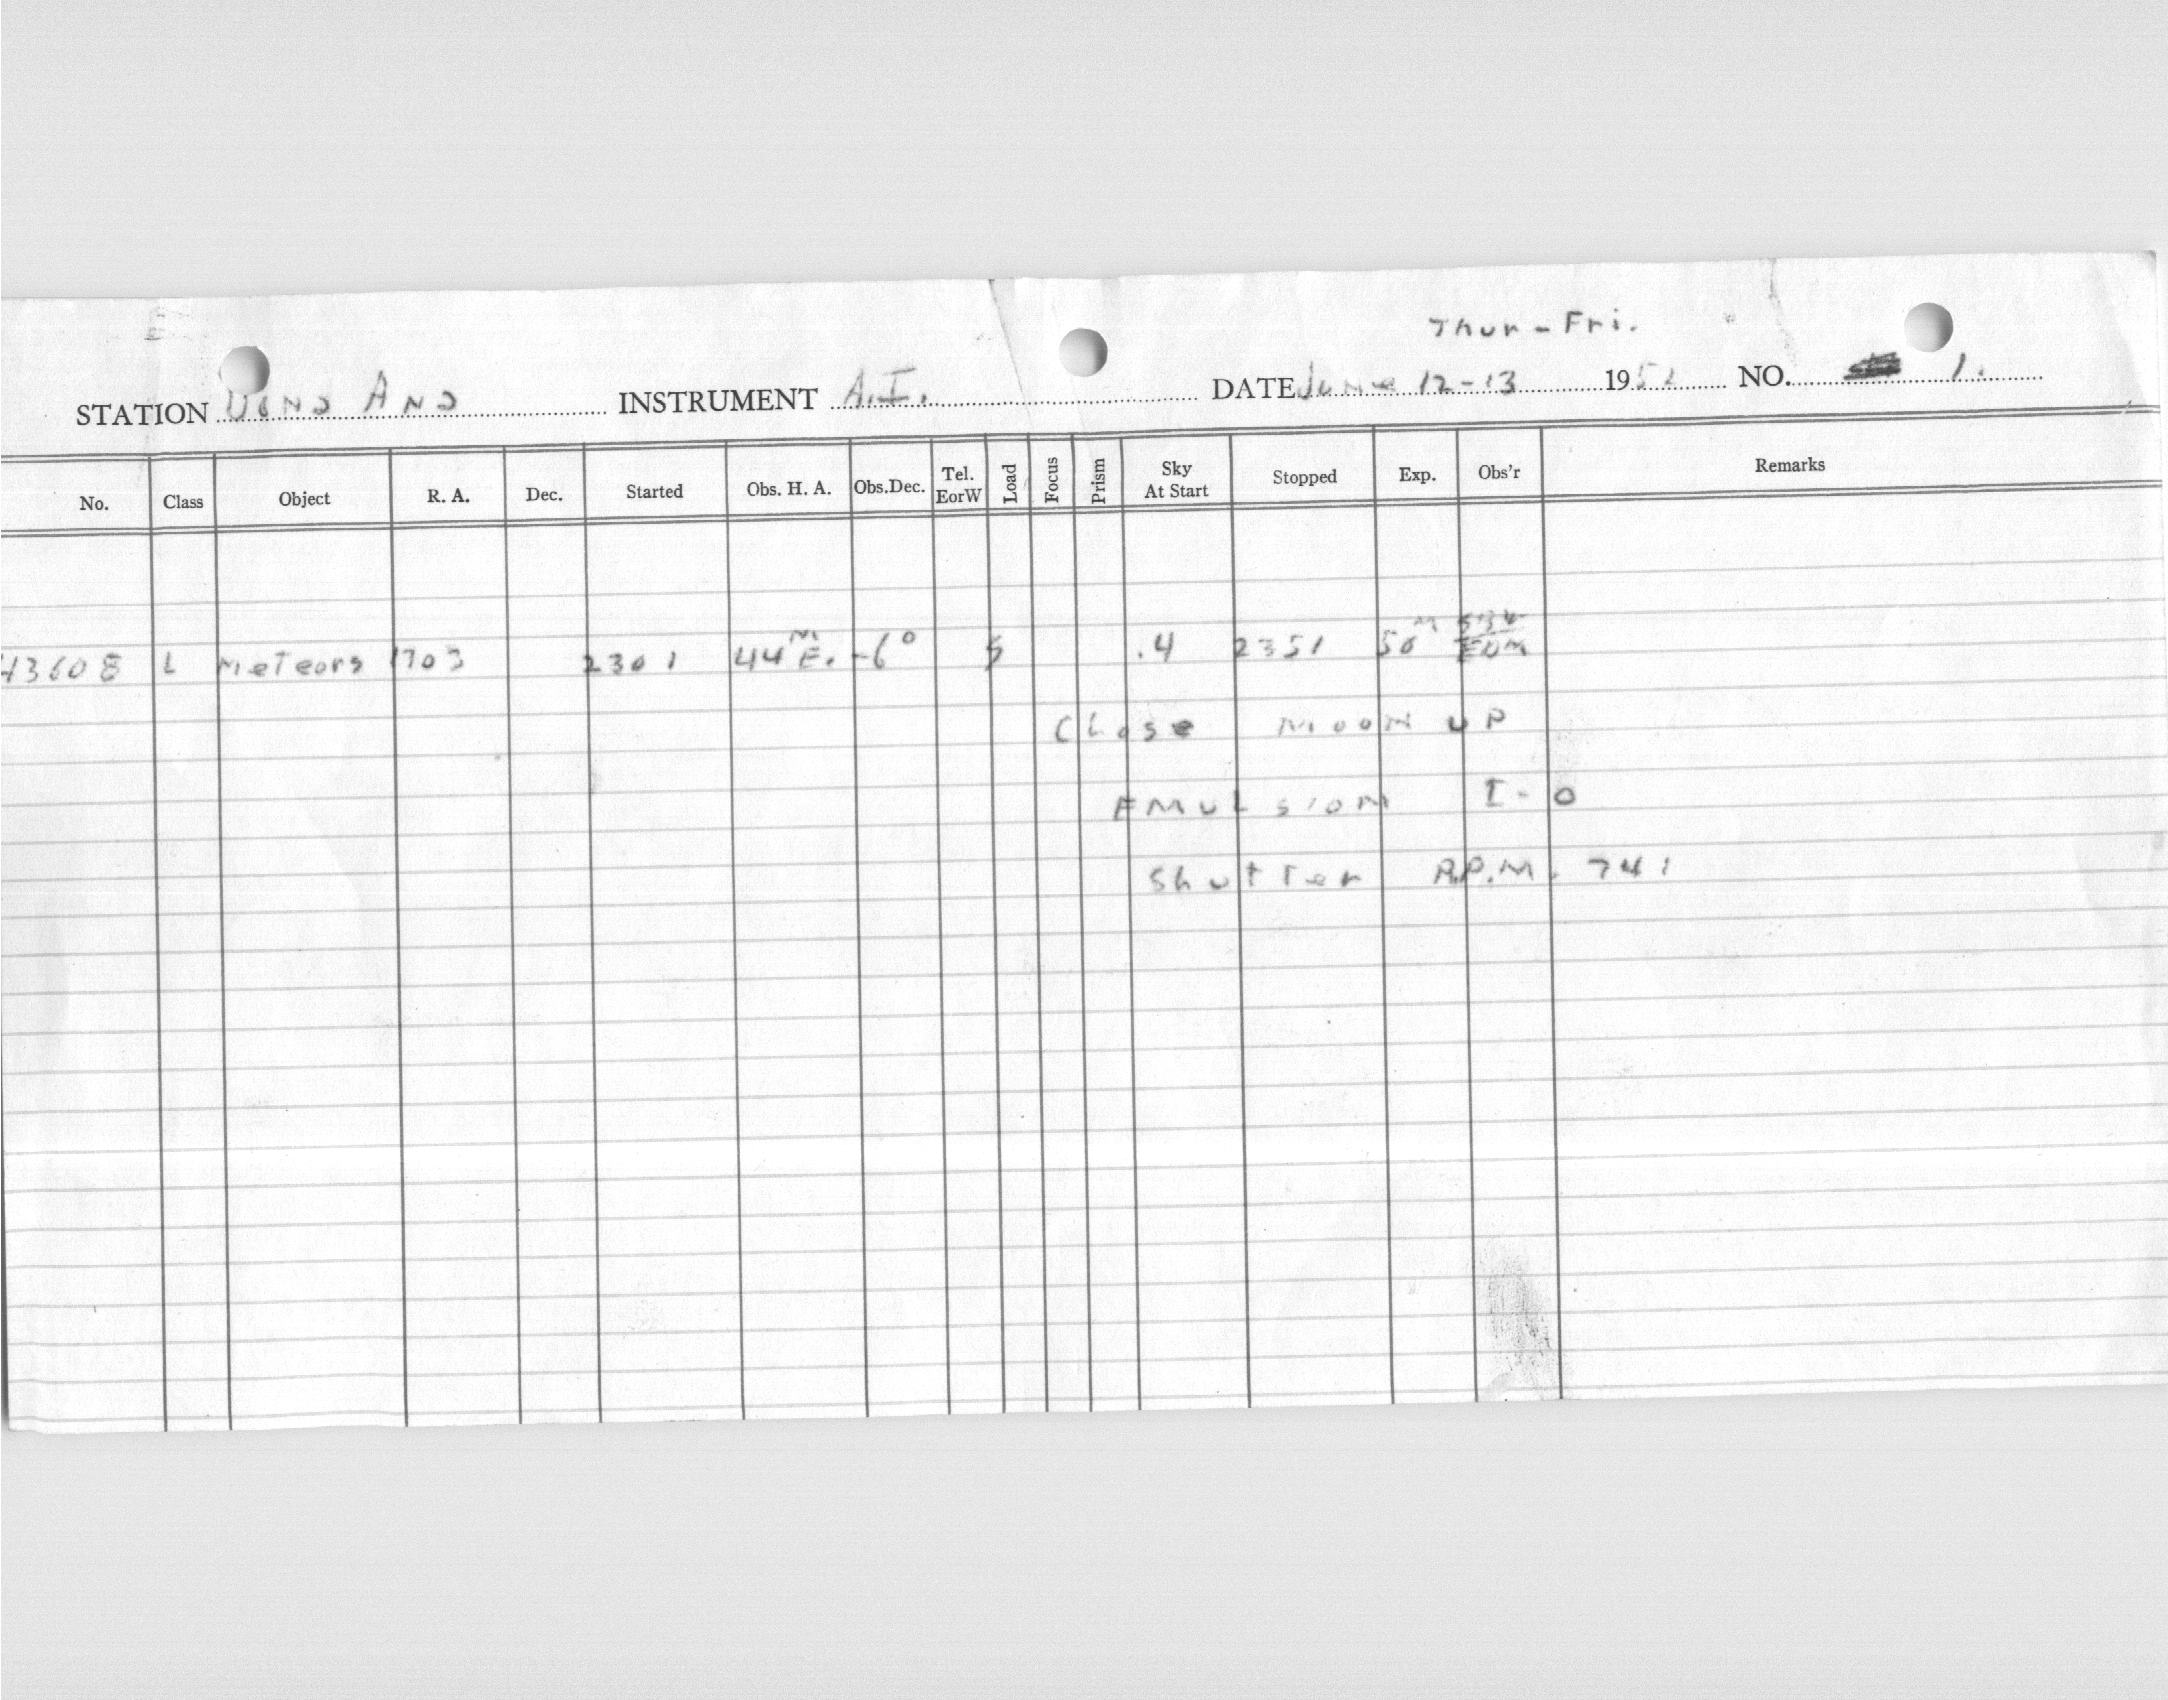 Thur - Fri.
STATION Dona Ana INSTRUMENT A.I. DATE June 12-13 1952 NO. 1.
No. Class Object R. A. Dec. Started Obs. H. A. Obs.Dec. Tel. EorW Load Focus Prism Sky At Start Stopped Exp. Obs'r Remarks
43608 L Meteors 1703 2301 44ᴹ E. -6° .4 2351 50ᴹ
Close Moon up
Emulsion I-O
Shutter R.P.M. 741